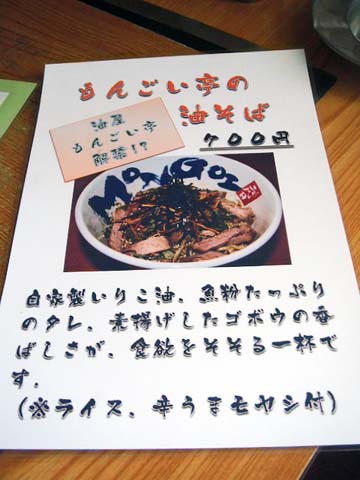 もんごい亭の
油そば
油屋
もんごい亭
解禁!?
700円
MONGOI
自家製いりこ油、魚粉たっぷり
のタレ、素揚げしたゴボウの香
ばしさが、食欲をそそる一杯で
す。
(※ライス、辛うまモヤシ付)